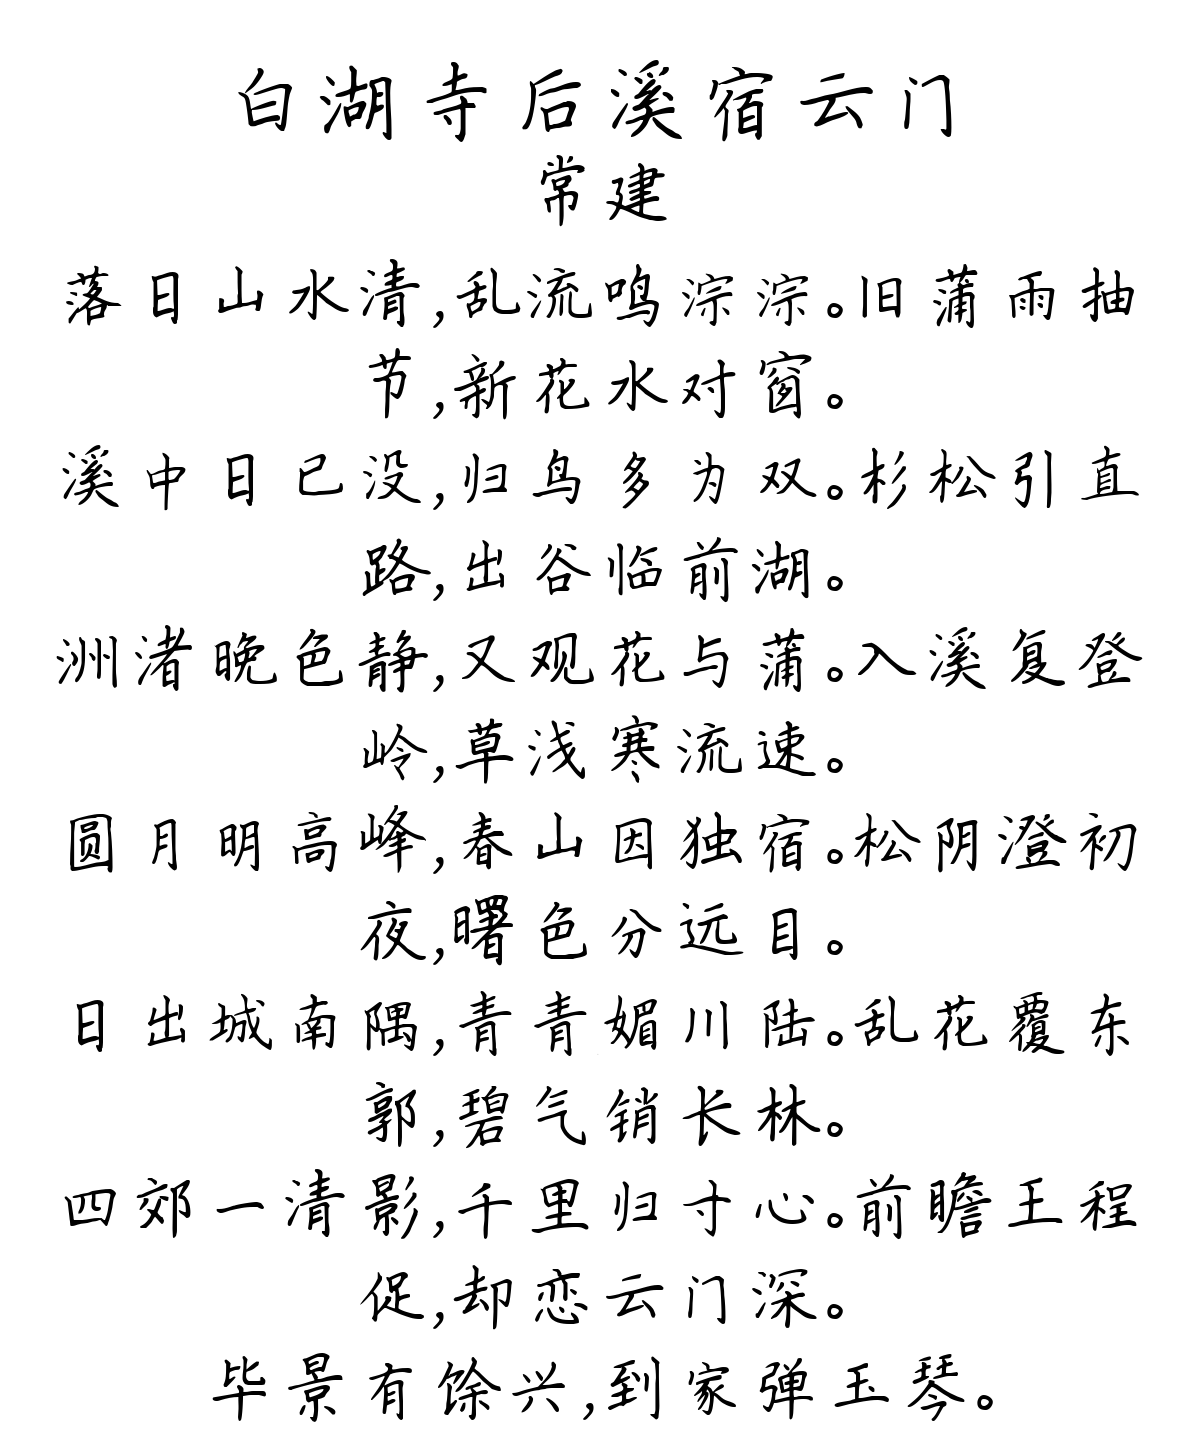 白湖寺后溪宿云门
常建
落日山水清,乱流鸣淙淙。旧蒲雨抽
节,新花水对窗。
溪中日已没,归鸟多为双。杉松引直
路,出谷临前湖。
洲渚晚色静,又观花与蒲。入溪复登
岭,草浅寒流速。
圆月明高峰,春山因独宿。松阴澄初
夜,曙色分远目。
日出城南隅,青青媚川陆。乱花覆东
郭,碧气销长林。
四郊一清影,千里归寸心。前瞻王程
促,却恋云门深。
毕景有馀兴,到家弹玉琴。